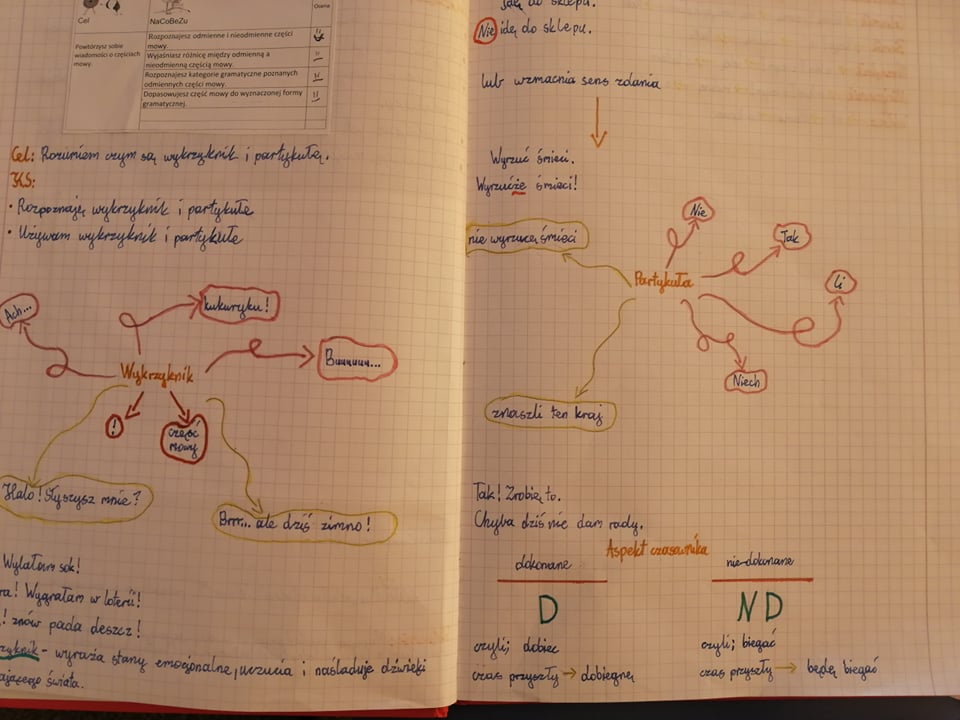 Ocena
Cel
NaCoBeZu
Powtórzysz sobie wiadomości o częściach mowy.
Rozpoznajesz odmienne i nieodmienne części mowy.
Wyjaśniasz różnicę między odmienną a nieodmienną częścią mowy.
Rozpoznasz kategorie gramatyczne poznanych odmiennych części mowy.
Dopasowujesz część mowy do wyznaczonej formy gramatycznej.
Cel: Rozumiem czym są wykrzyknik i partykułą.
• Rozpoznaję wykrzyknik i partykułę
• Używam wykrzyknik i partykułę
Ach...
kukuryku!
Buuuuuu...
Wykrzyknik
!
część
mowy
Halo! Słyszysz mnie?
Brrr... ale dziś zimno!
Wylałam sok!
! Wygrałam w loterii!
! znów pada deszcz!
- wyraża stany emocjonalne, uczucia i naśladuje dźwięki
świata.
Idę do sklepu.
Nie idę do sklepu.
lub wzmacnia sens zdania
Wyrzuć śmieci.
Wyrzućże śmieci!
nie wyrzucę śmieci
Partykuła
Nie
Tak
Li
Niech
znaszli ten kraj
Tak! Zrobię to.
Chyba dziś nie dam rady.
Aspekt czasownika
dokonane
nie-dokonane
D
ND
czyli; dobiec
czyli; biegać
czas przyszły → dobiegnę
czas przyszły → będę biegać